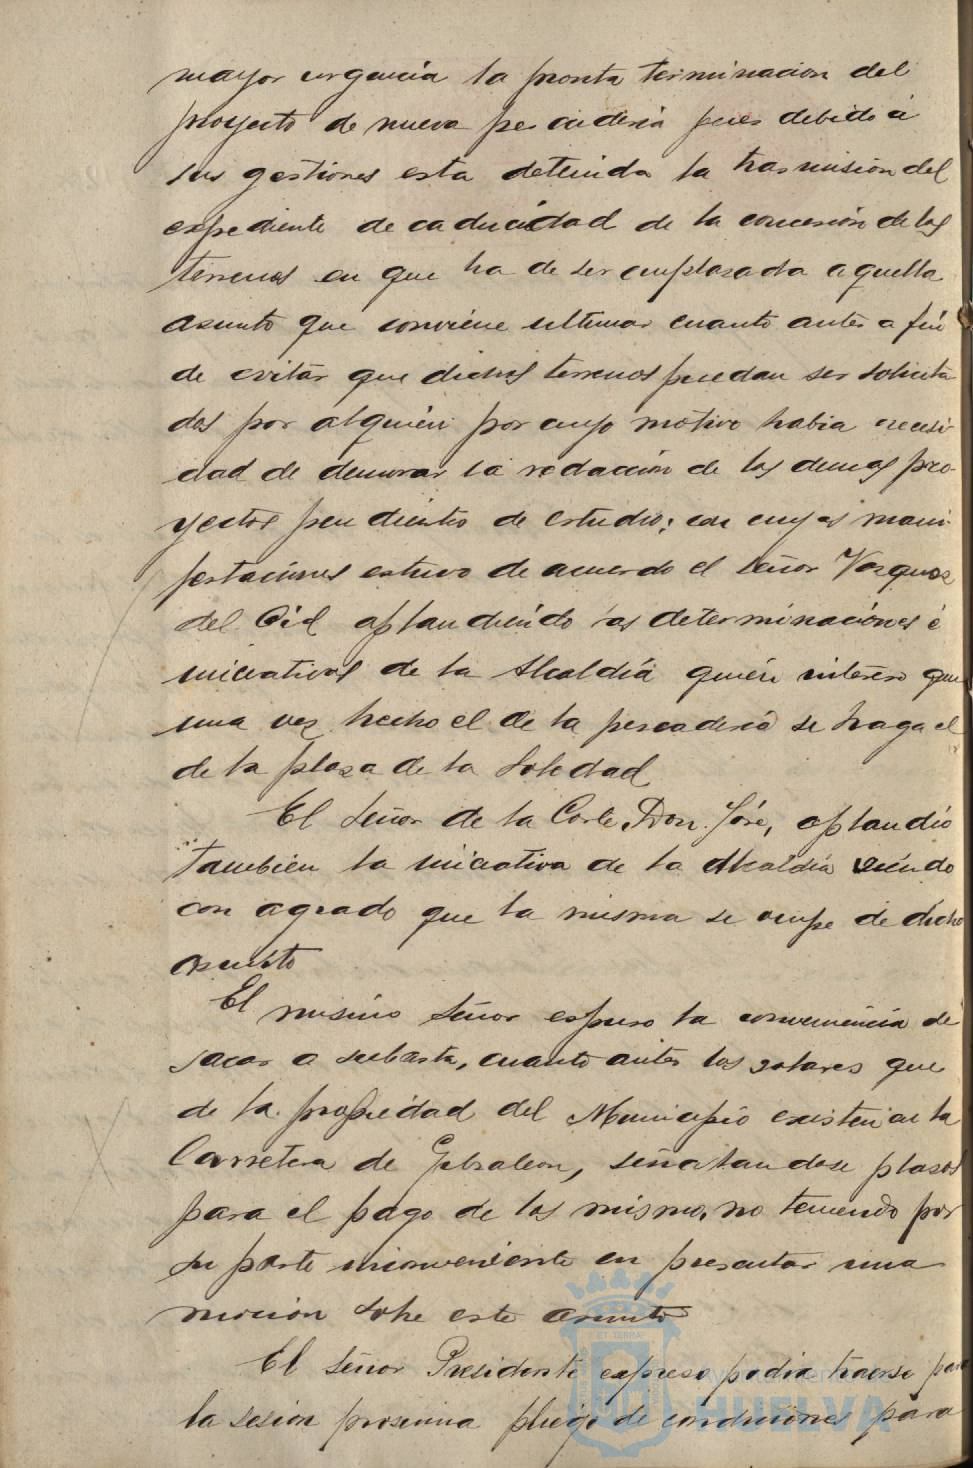 mayor urgencia la pronta terminacion del
proyecto de nueva pescaderia pues debido á
sus gestiones esta detenida la trasmisión del
expediente de caducidad de la concesión de los
terrenos en que ha de ser emplazada aquella
asunto que conviene ultimar cuanto antes a fin
de evitar que dichos terrenos puedan ser solicita
dos por alguién por cuyo motivo habia necesi
dad de demorar la redacción de los demas pro-
yectos pendientes de estudio; con cuyas mani
festaciones estuvo de acuerdo el señor Vazquez
del Cid aplaudiendo las determinaciones é
iniciativas de la Alcaldía quién interesa que
una vez hecho el de la pescaderia se haga el
de la plaza de la Soledad
El Señor de la Corte, Don José, aplaudió
tambien la iniciativa de la Alcaldía viendo
con agrado que la misma se ocupe de dicho
asunto
El mismo Señor expuso la conveniencia de
sacar a subasta, cuanto antes los solares que
de la propiedad del Municipio existen en la
Carretera de Gibraleon, señalandose plazos
para el pago de los mismo, no teniendo por
su parte inconveniente en presentar una
mocion sobre este asunto
El Señor Presidente expreso podia traerse para
la sesion proxima pliego de condiciones para
ET TERRAE
HUELVA